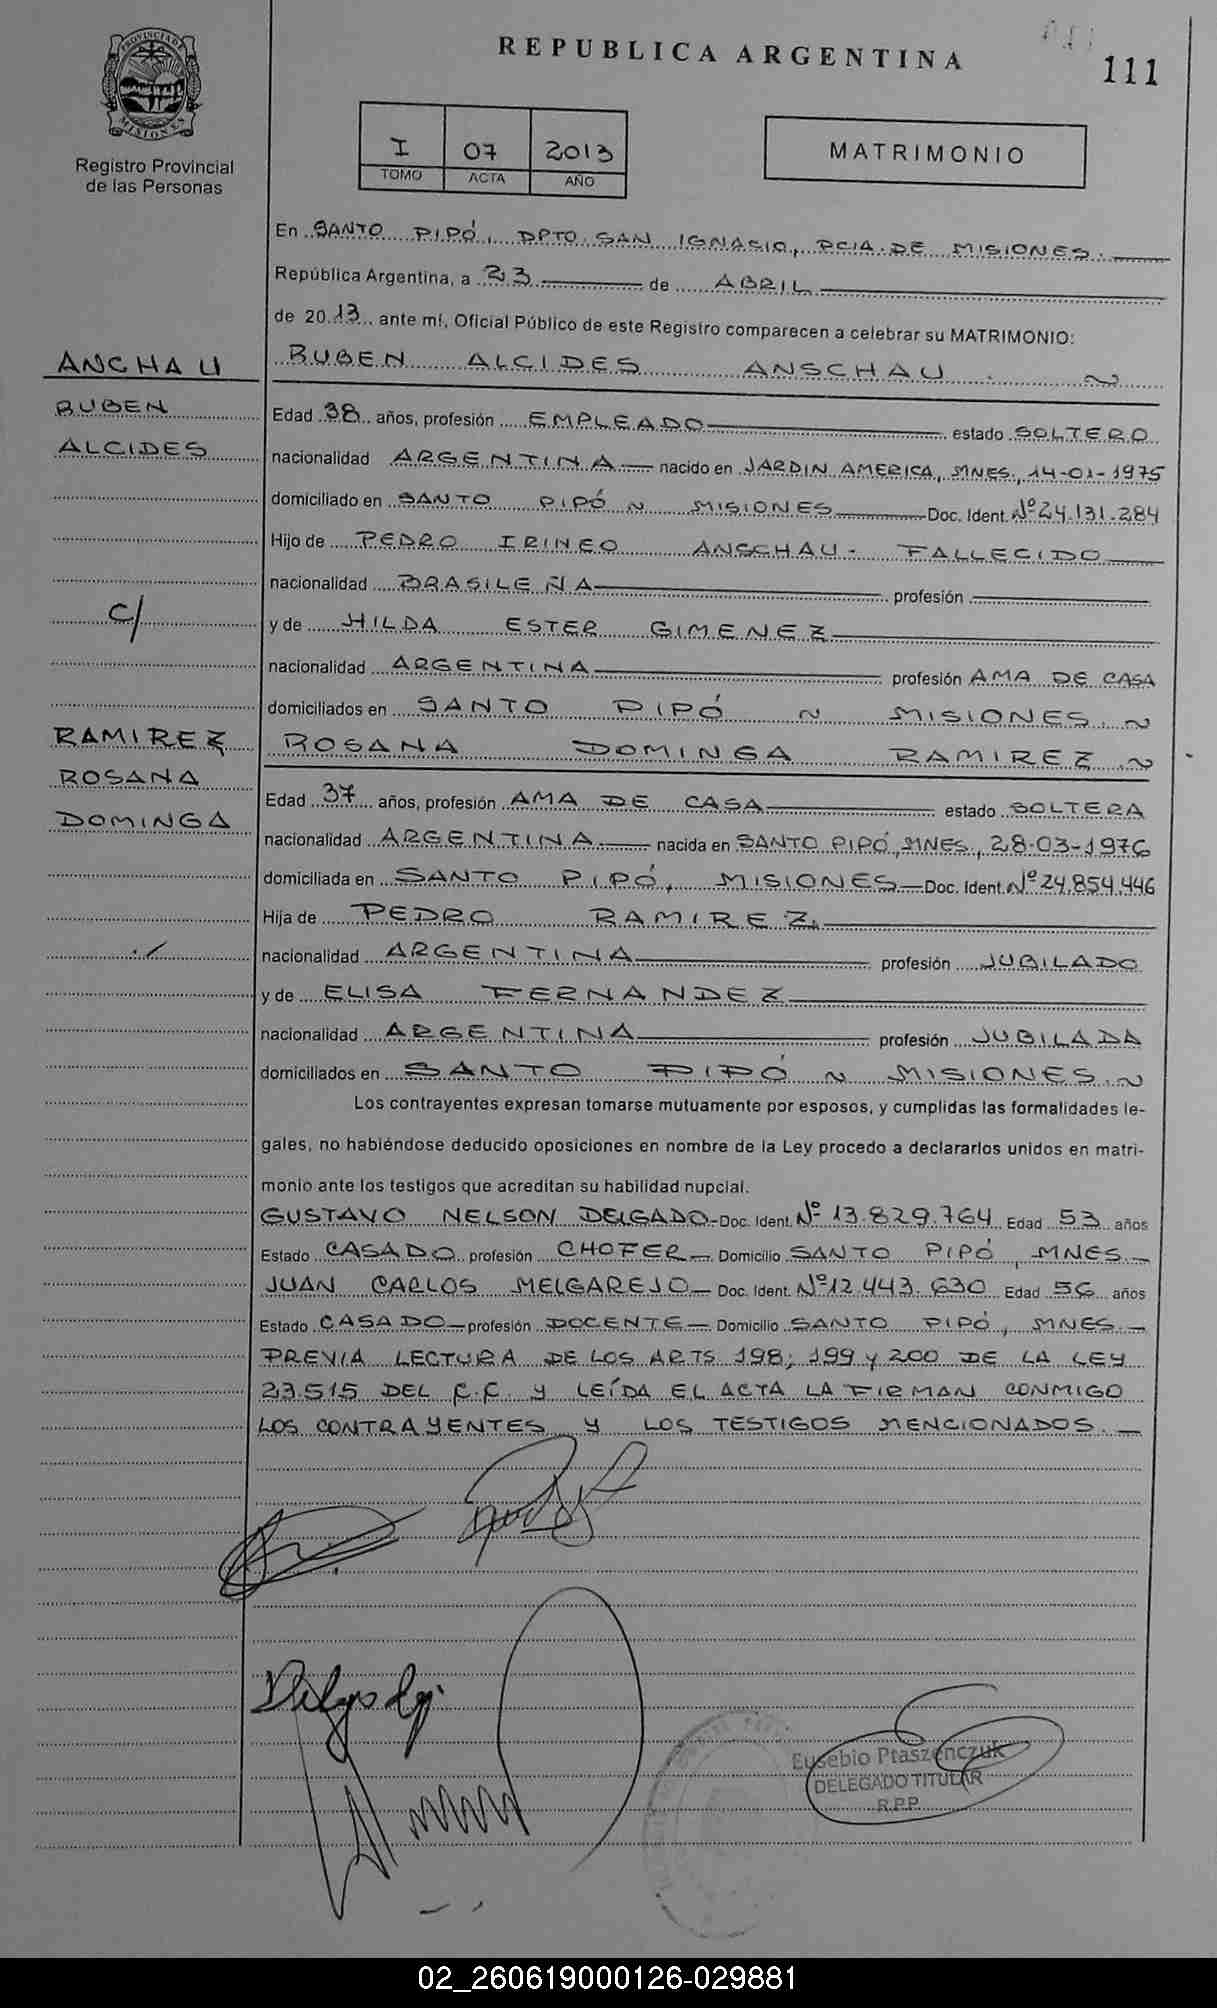 PROVINCIA DE
MISIONES
Registro Provincial
de las Personas
REPUBLICA ARGENTINA
111
I 07 2013
TOMO ACTA AÑO
MATRIMONIO
En SANTO PIPÓ, DPTO. SAN IGNACIO, PCIA. DE MISIONES.
República Argentina, a 23 de ABRIL
de 2013 ante mí, Oficial Público de este Registro comparecen a celebrar su MATRIMONIO:
ANCHAU
RUBEN
ALCIDES
C/
RAMIREZ
ROSANA
DOMINGA
RUBEN ALCIDES ANSCHAU
Edad 38 años, profesión EMPLEADO estado SOLTERO
nacionalidad ARGENTINA nacido en JARDIN AMERICA, MNES., 14-01-1975
domiciliado en SANTO PIPÓ ~ MISIONES Doc. Ident. Nº 24.131.284
Hijo de PEDRO IRINEO ANSCHAU - FALLECIDO
nacionalidad BRASILEÑA profesión
y de HILDA ESTER GIMENEZ
nacionalidad ARGENTINA profesión AMA DE CASA
domiciliados en SANTO PIPÓ ~ MISIONES. ~
ROSANA DOMINGA RAMIREZ ~
Edad 37 años, profesión AMA DE CASA estado SOLTERA
nacionalidad ARGENTINA nacida en SANTO PIPÓ, MNES., 28-03-1976
domiciliada en SANTO PIPÓ, MISIONES Doc. Ident. Nº 24.854.446
Hija de PEDRO RAMIREZ
nacionalidad ARGENTINA profesión JUBILADO
y de ELISA FERNANDEZ
nacionalidad ARGENTINA profesión JUBILADA
domiciliados en SANTO PIPÓ ~ MISIONES. ~
Los contrayentes expresan tomarse mutuamente por esposos, y cumplidas las formalidades le-
gales, no habiéndose deducido oposiciones en nombre de la Ley procedo a declararlos unidos en matri-
monio ante los testigos que acreditan su habilidad nupcial.
GUSTAVO NELSON DELGADO Doc. Ident. Nº 13.829.764 Edad 53 años
Estado CASADO profesión CHOFER Domicilio SANTO PIPÓ, MNES.
JUAN CARLOS MELGAREJO Doc. Ident. Nº 12.443.630 Edad 56 años
Estado CASADO profesión DOCENTE Domicilio SANTO PIPÓ, MNES.
PREVIA LECTURA DE LOS ARTS. 198; 199 y 200 DE LA LEY
23.515 DEL C.C. y LEÍDA EL ACTA LA FIRMAN CONMIGO
LOS CONTRAYENTES Y LOS TESTIGOS MENCIONADOS.
Eusebio Ptaszenczuk
DELEGADO TITULAR
R.P.P.
02_260619000126-029881